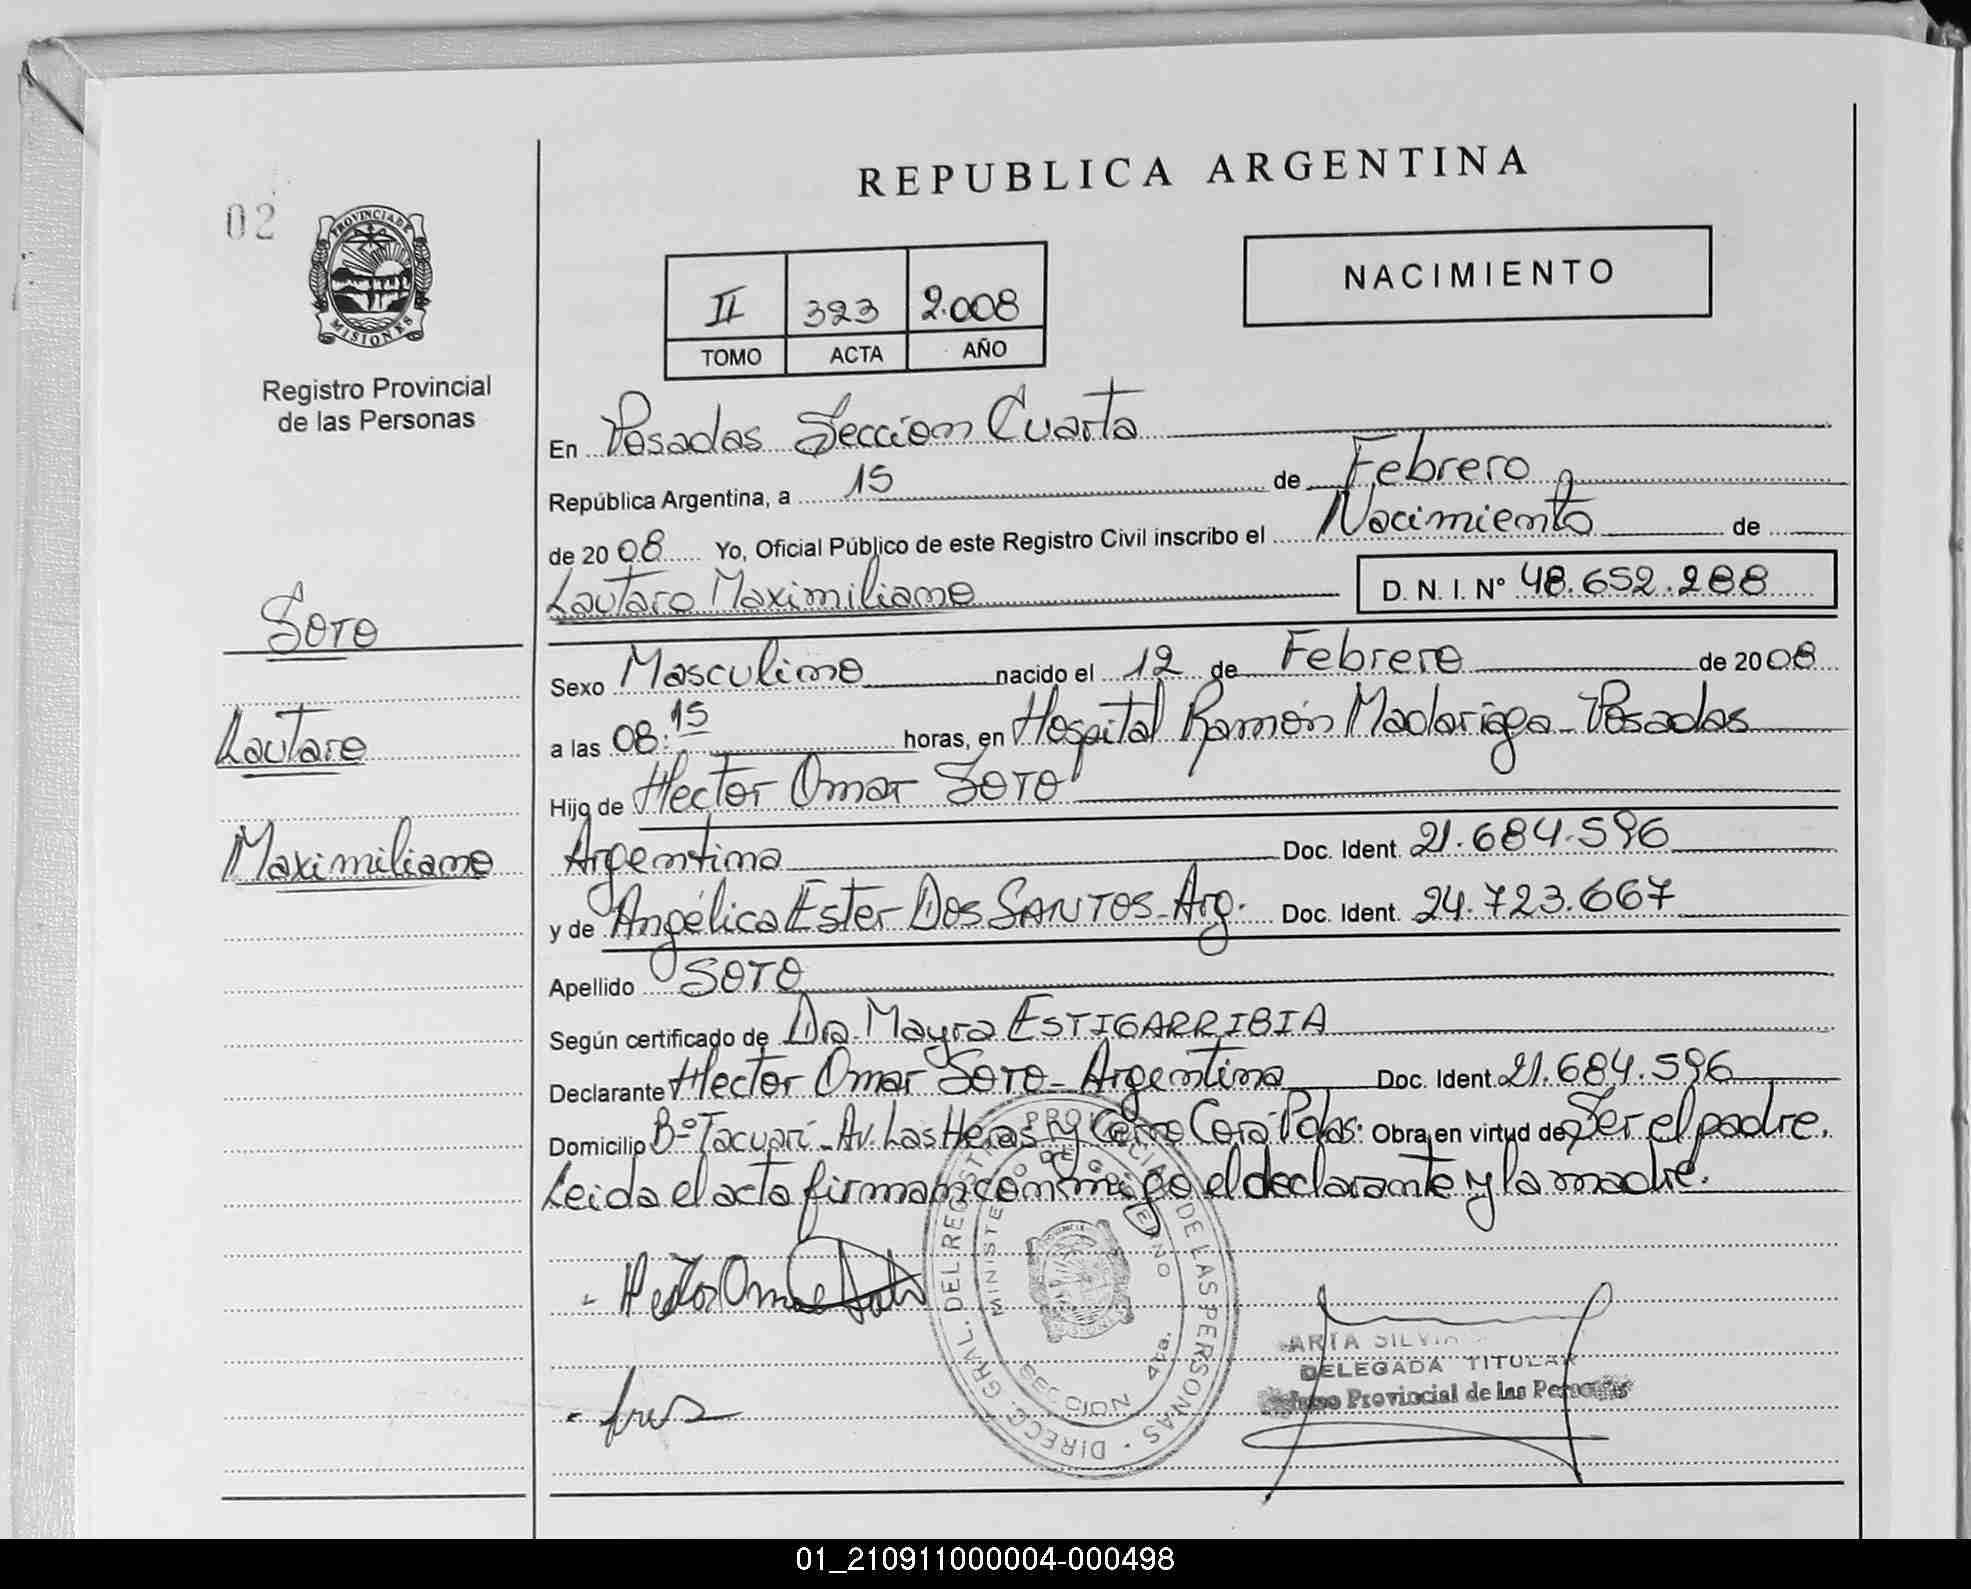 REPUBLICA ARGENTINA
02
PROVINCIA DE
MISIONES
Registro Provincial
de las Personas
II 323 2.008
TOMO ACTA AÑO
NACIMIENTO
En Posadas Seccion Cuarta
República Argentina, a 15 de Febrero
de 2008 Yo, Oficial Público de este Registro Civil inscribo el Nacimiento de
Lautaro Maximiliano D.N.I. Nº 48.652.288
Soto
Lautaro
Maximiliano
Sexo Masculino nacido el 12 de Febrero de 2008
a las 08:15 horas, en Hospital Ramón Madariaga - Posadas
Hijo de Hector Omar SOTO
Argentina Doc. Ident. 21.684.596
y de Angélica Ester DOS SANTOS - Arg. Doc. Ident. 24.723.667
Apellido SOTO
Según certificado de Dra. Mayra ESTIGARRIBIA
Declarante Hector Omar SOTO - Argentina Doc. Ident. 21.684.596
Domicilio Bº Tacuarí - Av. Las Heras y Cerro Corá Pdas. Obra en virtud de Ser el padre.
Leida el acta firman conmigo el declarante y la madre.
Hector Omar Soto
DIRECC. GRAL. DEL REGISTRO PROVINCIAL DE LAS PERSONAS
MINISTERIO DE GOBIERNO
SECCION 4ta.
ARTA SILVIA
DELEGADA TITULAR
Provincial de las Personas
01_210911000004-000498